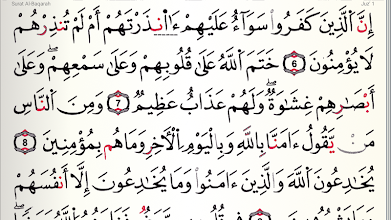 Surat Al-Baqarah Juz 1
إِنَّ ٱلَّذِينَ كَفَرُوا۟ سَوَآءٌ عَلَيْهِمْ ءَأَنذَرْتَهُمْ أَمْ لَمْ تُنذِرْهُمْ
لَا يُؤْمِنُونَ ٦ خَتَمَ ٱللَّهُ عَلَىٰ قُلُوبِهِمْ وَعَلَىٰ سَمْعِهِمْ ۖ وَعَلَىٰٓ
أَبْصَـٰرِهِمْ غِشَـٰوَةٌ ۖ وَلَهُمْ عَذَابٌ عَظِيمٌ ٧ وَمِنَ ٱلنَّاسِ
مَن يَقُولُ ءَامَنَّا بِٱللَّهِ وَبِٱلْيَوْمِ ٱلْـَٔاخِرِ وَمَا هُم بِمُؤْمِنِينَ ٨
يُخَـٰدِعُونَ ٱللَّهَ وَٱلَّذِينَ ءَامَنُوا۟ وَمَا يَخْدَعُونَ إِلَّآ أَنفُسَهُمْ